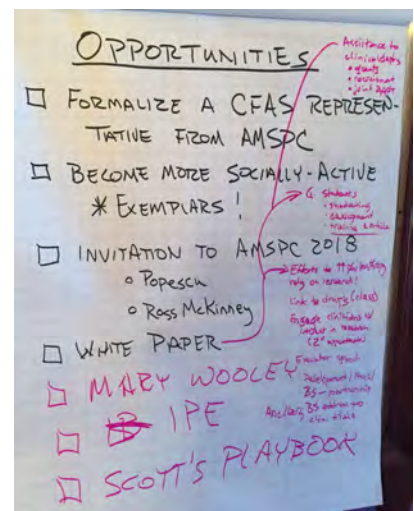 OPPORTUNITIES
FORMALIZE A CFAS REPRESEN-
TATIVE FROM AMSPC
BECOME MORE SOCIALLY-ACTIVE
* EXEMPLARS !
INVITATION TO AMSPC 2018
Popescu
Ross McKinney
WHITE PAPER
MARY WOOLEY
IPE
SCOTT'S PLAYBOOK
Assistance to
clinical depts
• grants
• recruitment
• joint appts
G. Students
• shadowing
• development
• training
Efforts to
rely on research!
Link to drugs (class)
Engage clinicians w/
interest in research
(2° appointments)
speech
Development
BS - partnership
BS address